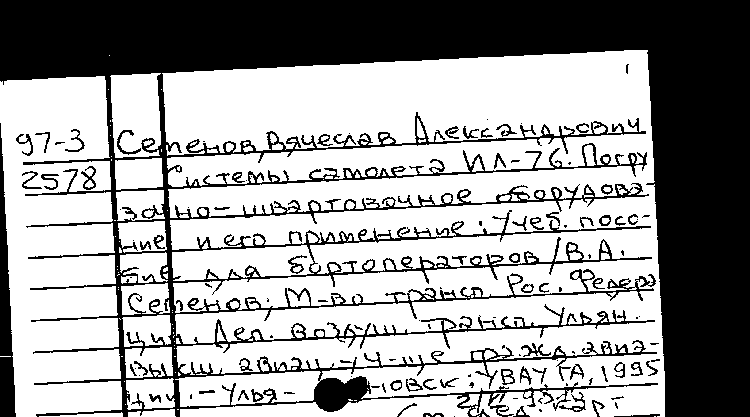 97-3 Семенов, Вячеслав Александрович
2578 Системы самолета ИЛ-76. Погру
зочно-швартовочное оборудова-
ние и его применение: Учеб. посо-
бие для бортоператоров / В.А.
Семенов; М-во трансп. Рос. Федера
ции. Деп. воздуш. трансп., Ульян.
высш. авиац. уч-ще гражд. авиа-
ции. - Улья- новск: УВАУ ГА, 1995
См. след. карт